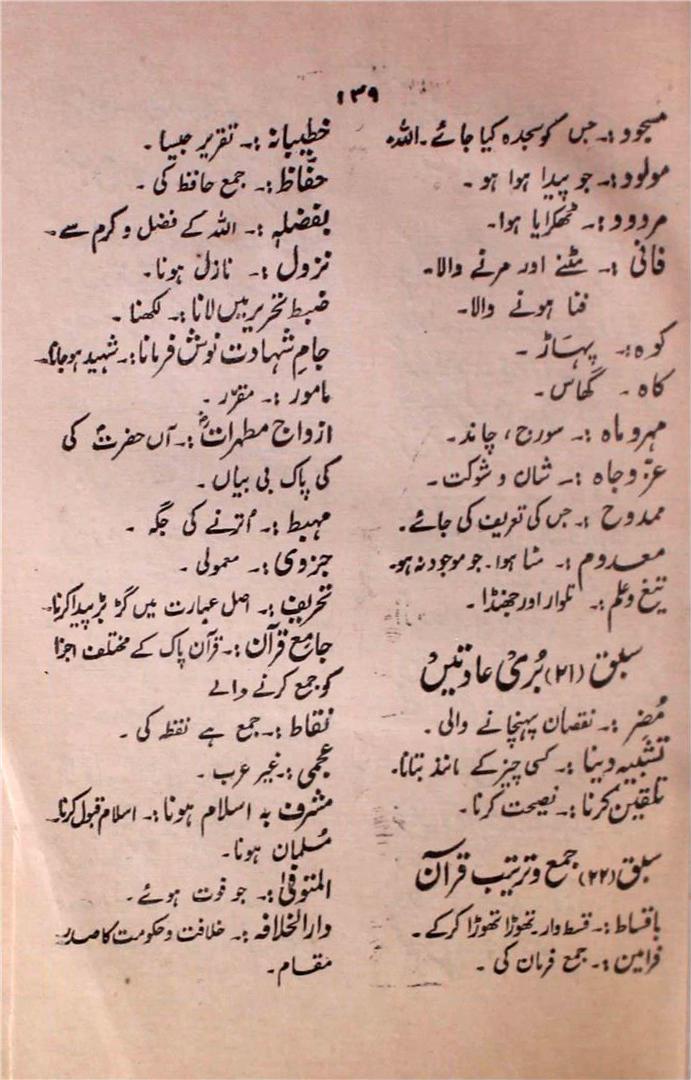 ۱۳۹
مسجود:۔ جس کو سجدہ کیا جائے۔ اللہ۔
مولود:۔ جو پیدا ہوا ہو۔
مردود:۔ ٹھکرایا ہوا۔
فانی:۔ مٹنے اور مرنے والا۔
فنا ہونے والا۔
کوہ:۔ پہاڑ۔
کاہ۔ گھاس۔
مہروماہ:۔ سورج، چاند۔
عزّ وجاہ:۔ شان و شوکت۔
ممدوح:۔ جس کی تعریف کی جائے۔
معدوم:۔ مٹا ہوا۔ جو موجود نہ ہو۔
تیغ وعلم:۔ تلوار اور جھنڈا۔
سبق (۲۱) بُری عادتیں
مُضِر:۔ نقصان پہنچانے والی۔
تشبیہ دینا:۔ کسی چیز کے مانند بتانا۔
تلقین کرنا:۔ نصیحت کرنا۔
سبق (۲۲) جمع و ترتیب قرآن
باقساط:۔ قسط وار۔ تھوڑا تھوڑا کرکے۔
فرامین:۔ جمع فرمان کی۔
خطیبانہ:۔ تقریر جیسا۔
حفّاظ:۔ جمع حافظ کی۔
بفضلہٖ:۔ اللہ کے فضل و کرم سے۔
نزول:۔ نازل ہونا۔
ضبط تحریر میں لانا:۔ لکھنا۔
جامِ شہادت نوش فرمانا:۔ شہید ہوجانا۔
مامور:۔ مقرّر۔
ازواج مطہراتؓ:۔ آں حضرتؐ کی
کی پاک بی بیاں۔
مہبط:۔ اُترنے کی جگہ۔
جزوی:۔ معمولی۔
تحریف:۔ اصل عبارت میں گڑبڑ پیدا کرنا۔
جامع قرآن:۔ قرآن پاک کے مختلف اجزا
کو جمع کرنے والے
نقاط:۔ جمع ہے نقطہ کی۔
عجمی:۔ غیر عرب۔
مشرف بہ اسلام ہونا:۔ اسلام قبول کرنا۔
مُسلمان ہونا۔
المتوفیٰ:۔ جو فوت ہوئے۔
دارالخلافہ:۔ خلافت و حکومت کا صدر
مقام۔